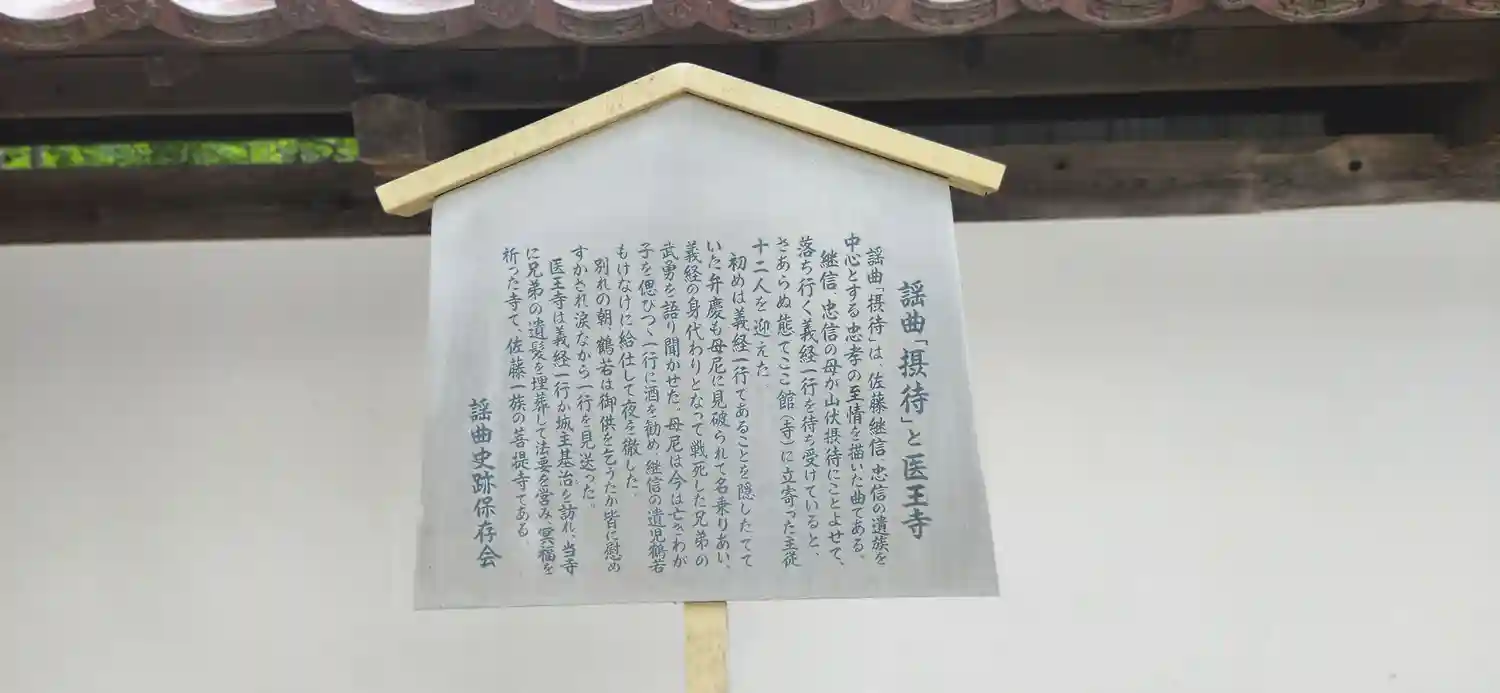 謡曲「摂待」と医王寺
謡曲「摂待」は、佐藤継信、忠信の遺族を
中心とする忠孝の至情を描いた曲である。
継信、忠信の母が山伏摂待にことよせて、
落ち行く義経一行を待ち受けていると、
さあらぬ態てここ館(寺)に立寄った主従
十二人を迎えた。
初めは義経一行であることを隠したてて
いた弁慶も母尼に見破られて名乗りあい、
義経の身代わりとなって戦死した兄弟の
武勇を語り聞かせた。母尼は今は亡きわが
子を偲びつゝ一行に酒を勧め、継信の遺児鶴若
もけなげに給仕して夜を徹した。
別れの朝、鶴若は御供を乞うたが皆に慰め
すかされ涙ながら一行を見送った。
医王寺は義経一行が城主基治を訪れ、当寺
に兄弟の遺髪を埋葬して法要を営み、冥福を
祈った寺で、佐藤一族の菩提寺である。
謡曲史跡保存会